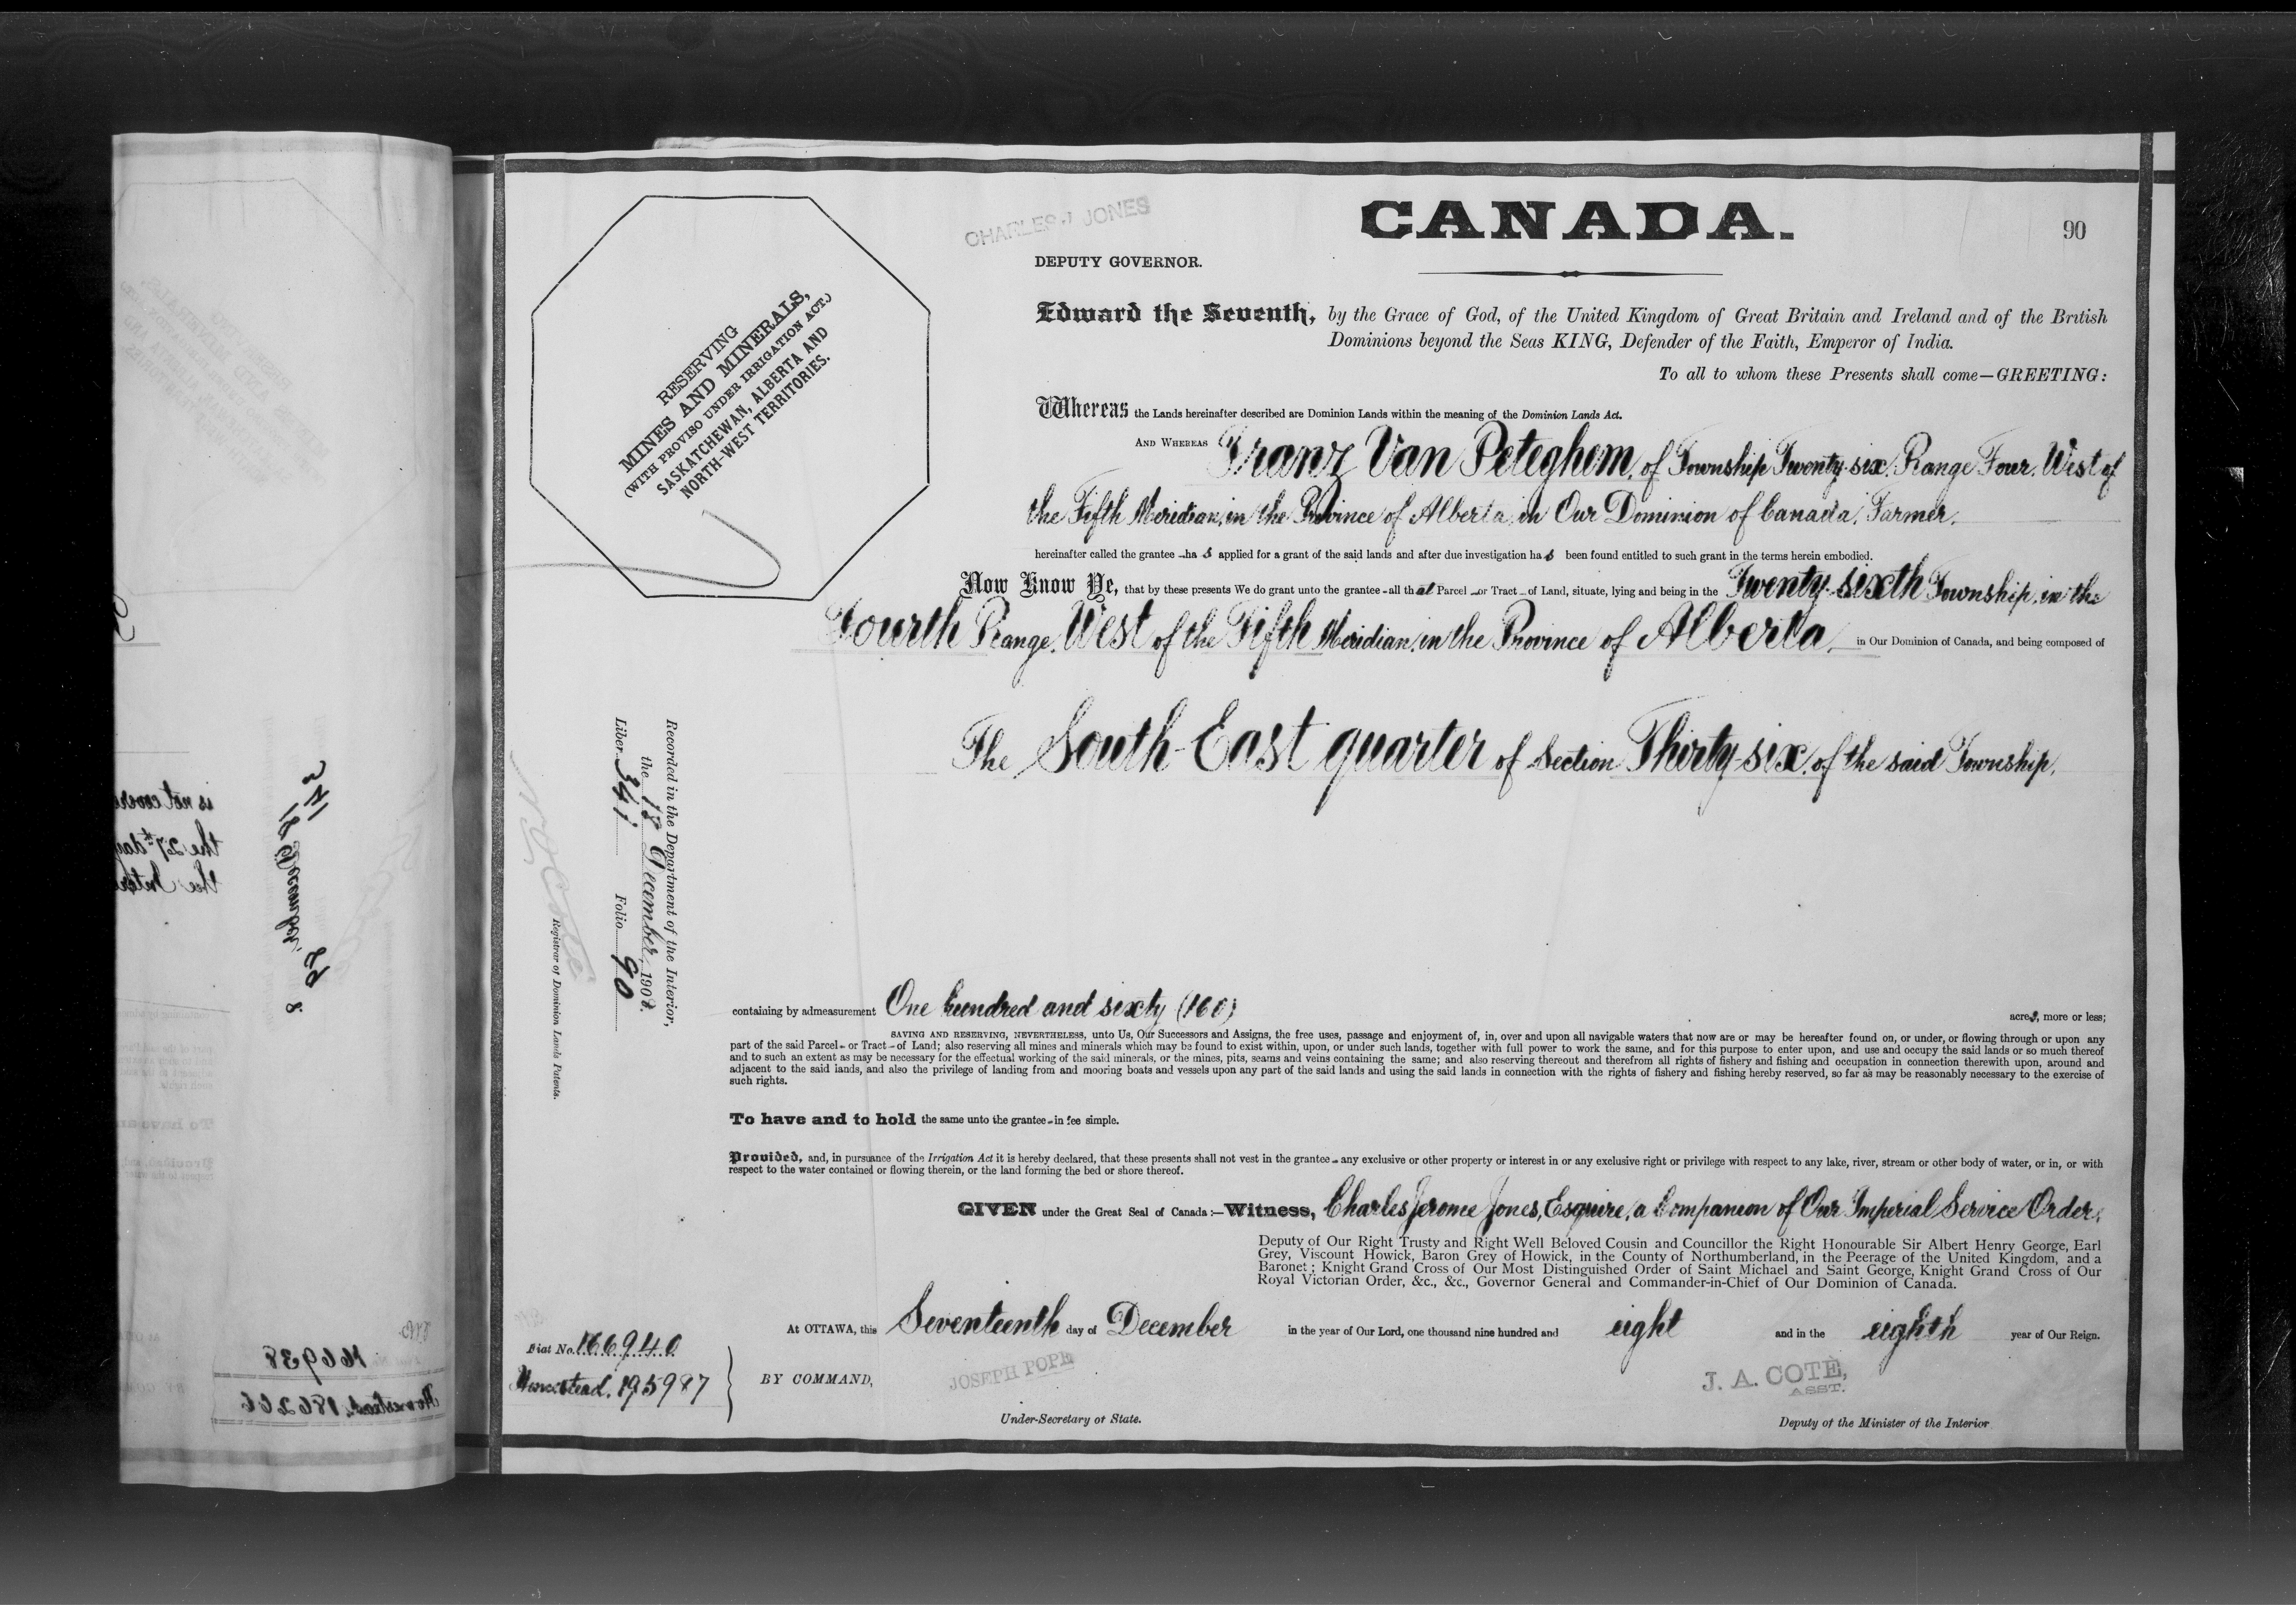 CHARLES J JONES
CANADA.
90
DEPUTY GOVERNOR.
RESERVING
MINES AND MINERALS,
(WITH PROVISO UNDER IRRIGATION ACT.)
SASKATCHEWAN, ALBERTA AND
NORTH-WEST TERRITORIES.
Edward the Seventh, by the Grace of God, of the United Kingdom of Great Britain and Ireland and of the British
Dominions beyond the Seas KING, Defender of the Faith, Emperor of India.
To all to whom these Presents shall come—GREETING:
Whereas the Lands hereinafter described are Dominion Lands within the meaning of the Dominion Lands Act.
AND WHEREAS Franz Van Peteghem, of Township Twenty-six, Range Four, West of
the Fifth Meridian, in the Province of Alberta, in Our Dominion of Canada, Farmer.
hereinafter called the grantee – has applied for a grant of the said lands and after due investigation has been found entitled to such grant in the terms herein embodied.
Now Know Ye, that by these presents We do grant unto the grantee – all that Parcel – or Tract – of Land, situate, lying and being in the Twenty-sixth Township, in the
Fourth Range, West of the Fifth Meridian, in the Province of Alberta, in Our Dominion of Canada, and being composed of
The South-East quarter of Section Thirty-six, of the said Township.
Recorded in the Department of the Interior,
the 18 December, 1908.
Liber 341 Folio 90
N O Coté
Registrar of Dominion Lands Patents.
containing by admeasurement One hundred and sixty (160) acres, more or less;
SAVING AND RESERVING, NEVERTHELESS, unto Us, Our Successors and Assigns, the free uses, passage and enjoyment of, in, over and upon all navigable waters that now are or may be hereafter found on, or under, or flowing through or upon any
part of the said Parcel – or Tract – of Land; also reserving all mines and minerals which may be found to exist within, upon, or under such lands, together with full power to work the same, and for this purpose to enter upon, and use and occupy the said lands or so much thereof
and to such an extent as may be necessary for the effectual working of the said minerals, or the mines, pits, seams and veins containing the same; and also reserving thereout and therefrom all rights of fishery and fishing and occupation in connection therewith upon, around and
adjacent to the said lands, and also the privilege of landing from and mooring boats and vessels upon any part of the said lands and using the said lands in connection with the rights of fishery and fishing hereby reserved, so far as may be reasonably necessary to the exercise of
such rights.
To have and to hold the same unto the grantee – in fee simple.
Provided, and, in pursuance of the Irrigation Act it is hereby declared, that these presents shall not vest in the grantee – any exclusive or other property or interest in or any exclusive right or privilege with respect to any lake, river, stream or other body of water, or in, or with
respect to the water contained or flowing therein, or the land forming the bed or shore thereof.
GIVEN under the Great Seal of Canada :—Witness, Charles Jerome Jones, Esquire, a Companion of Our Imperial Service Order,
Deputy of Our Right Trusty and Right Well Beloved Cousin and Councillor the Right Honourable Sir Albert Henry George, Earl
Grey, Viscount Howick, Baron Grey of Howick, in the County of Northumberland, in the Peerage of the United Kingdom, and a
Baronet ; Knight Grand Cross of Our Most Distinguished Order of Saint Michael and Saint George, Knight Grand Cross of Our
Royal Victorian Order, &c., &c., Governor General and Commander-in-Chief of Our Dominion of Canada.
At OTTAWA, this Seventeenth day of December in the year of Our Lord, one thousand nine hundred and eight and in the eighth year of Our Reign.
Fiat No. 166940
Homestead. 195987
BY COMMAND,
JOSEPH POPE
Under-Secretary of State.
J. A. COTÉ,
ASST.
Deputy of the Minister of the Interior
is not covere
the 27th day
the Inter
166938
Homestead. 186266